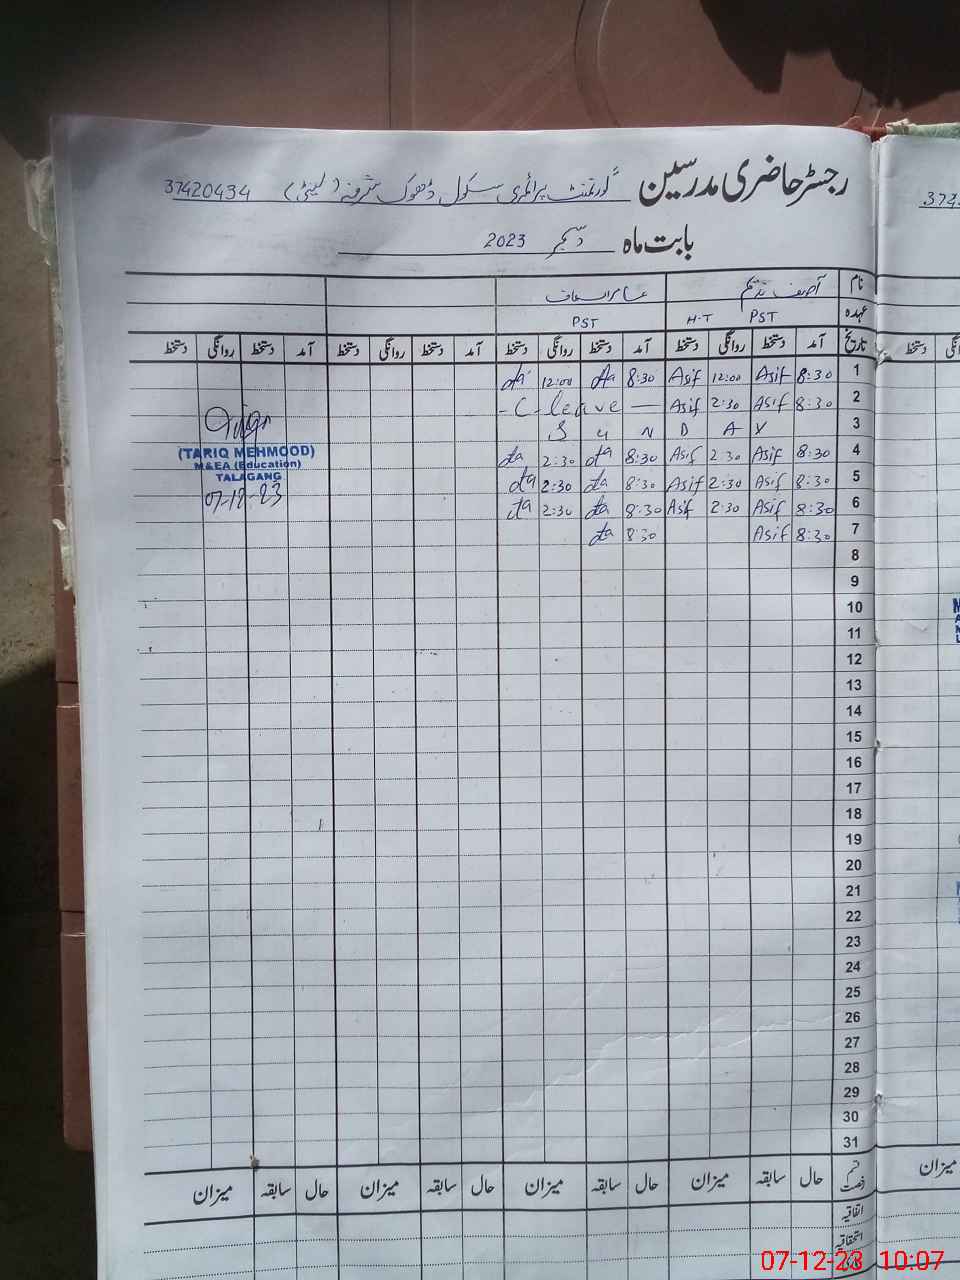 رجسٹر حاضری مدرسین گورنمنٹ پرائمری سکول ڈھوک شرفہ (لیٹی) 37420434
بابت ماہ دسمبر 2023
نام آصف ندیم
عہدہ PST H.T PST
تاریخ آمد دستخط روانگی دستخط آمد دستخط روانگی دستخط آمد دستخط روانگی دستخط آمد دستخط روانگی دستخط
1 8:30 Asif 12:00 Asif 8:30 12:00
2 8:30 Asif 2:30 Asif - C- leave —
3 S u N D A Y
4 8:30 Asif 2:30 Asif 8:30 2:30
5 8:30 Asif 2:30 Asif 8:30 2:30
6 8:30 Asif 2:30 Asif 8:30 2:30
7 8:30 Asif 8:30
8
9
10
11
12
13
14
15
16
17
18
19
20
21
22
23
24
25
26
27
28
29
30
31
(TARIQ MEHMOOD)
M&EA (Education)
TALAGANG
07-12-23
قسم رخصت حال سابقہ میزان حال سابقہ میزان حال سابقہ میزان حال سابقہ میزان
اتفاقیہ
استحقاقیہ
374
دستخط
میزان
07-12-23 10:07